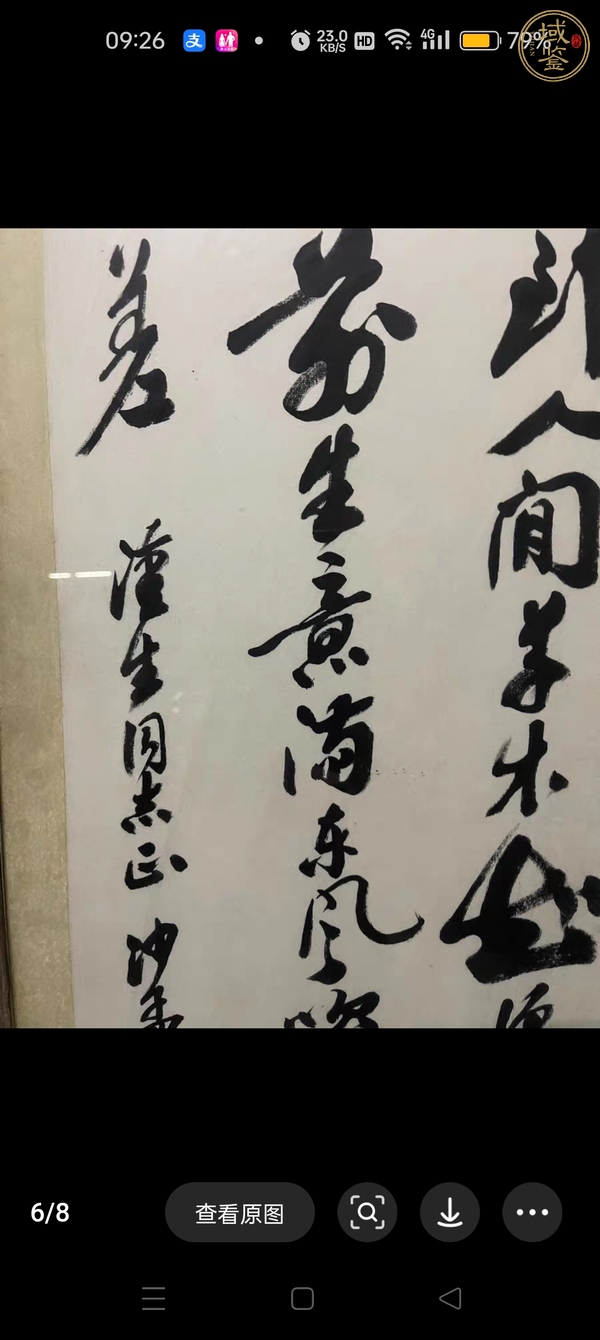 09:26 支 23.0 KB/S HD 4G 79%
域鉴
到人間草木知便
前生意满东风吹
差
生同志正 沙孟
6/8 查看原图